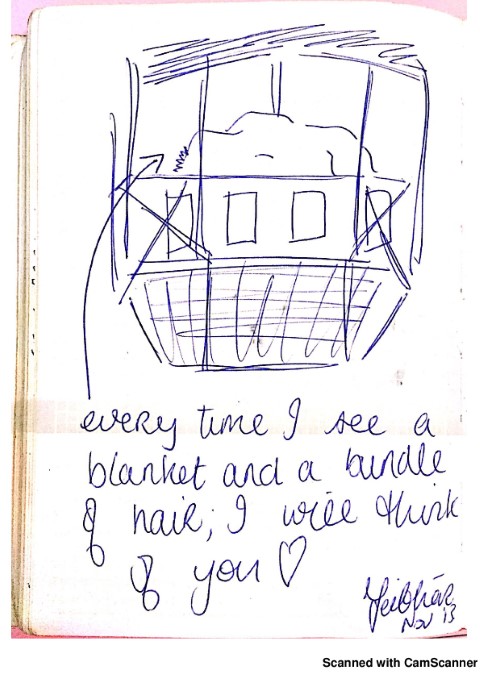 every time I see a
blanket and a bundle
of hair; I will think
of you ♡
Nov '13
Scanned with CamScanner